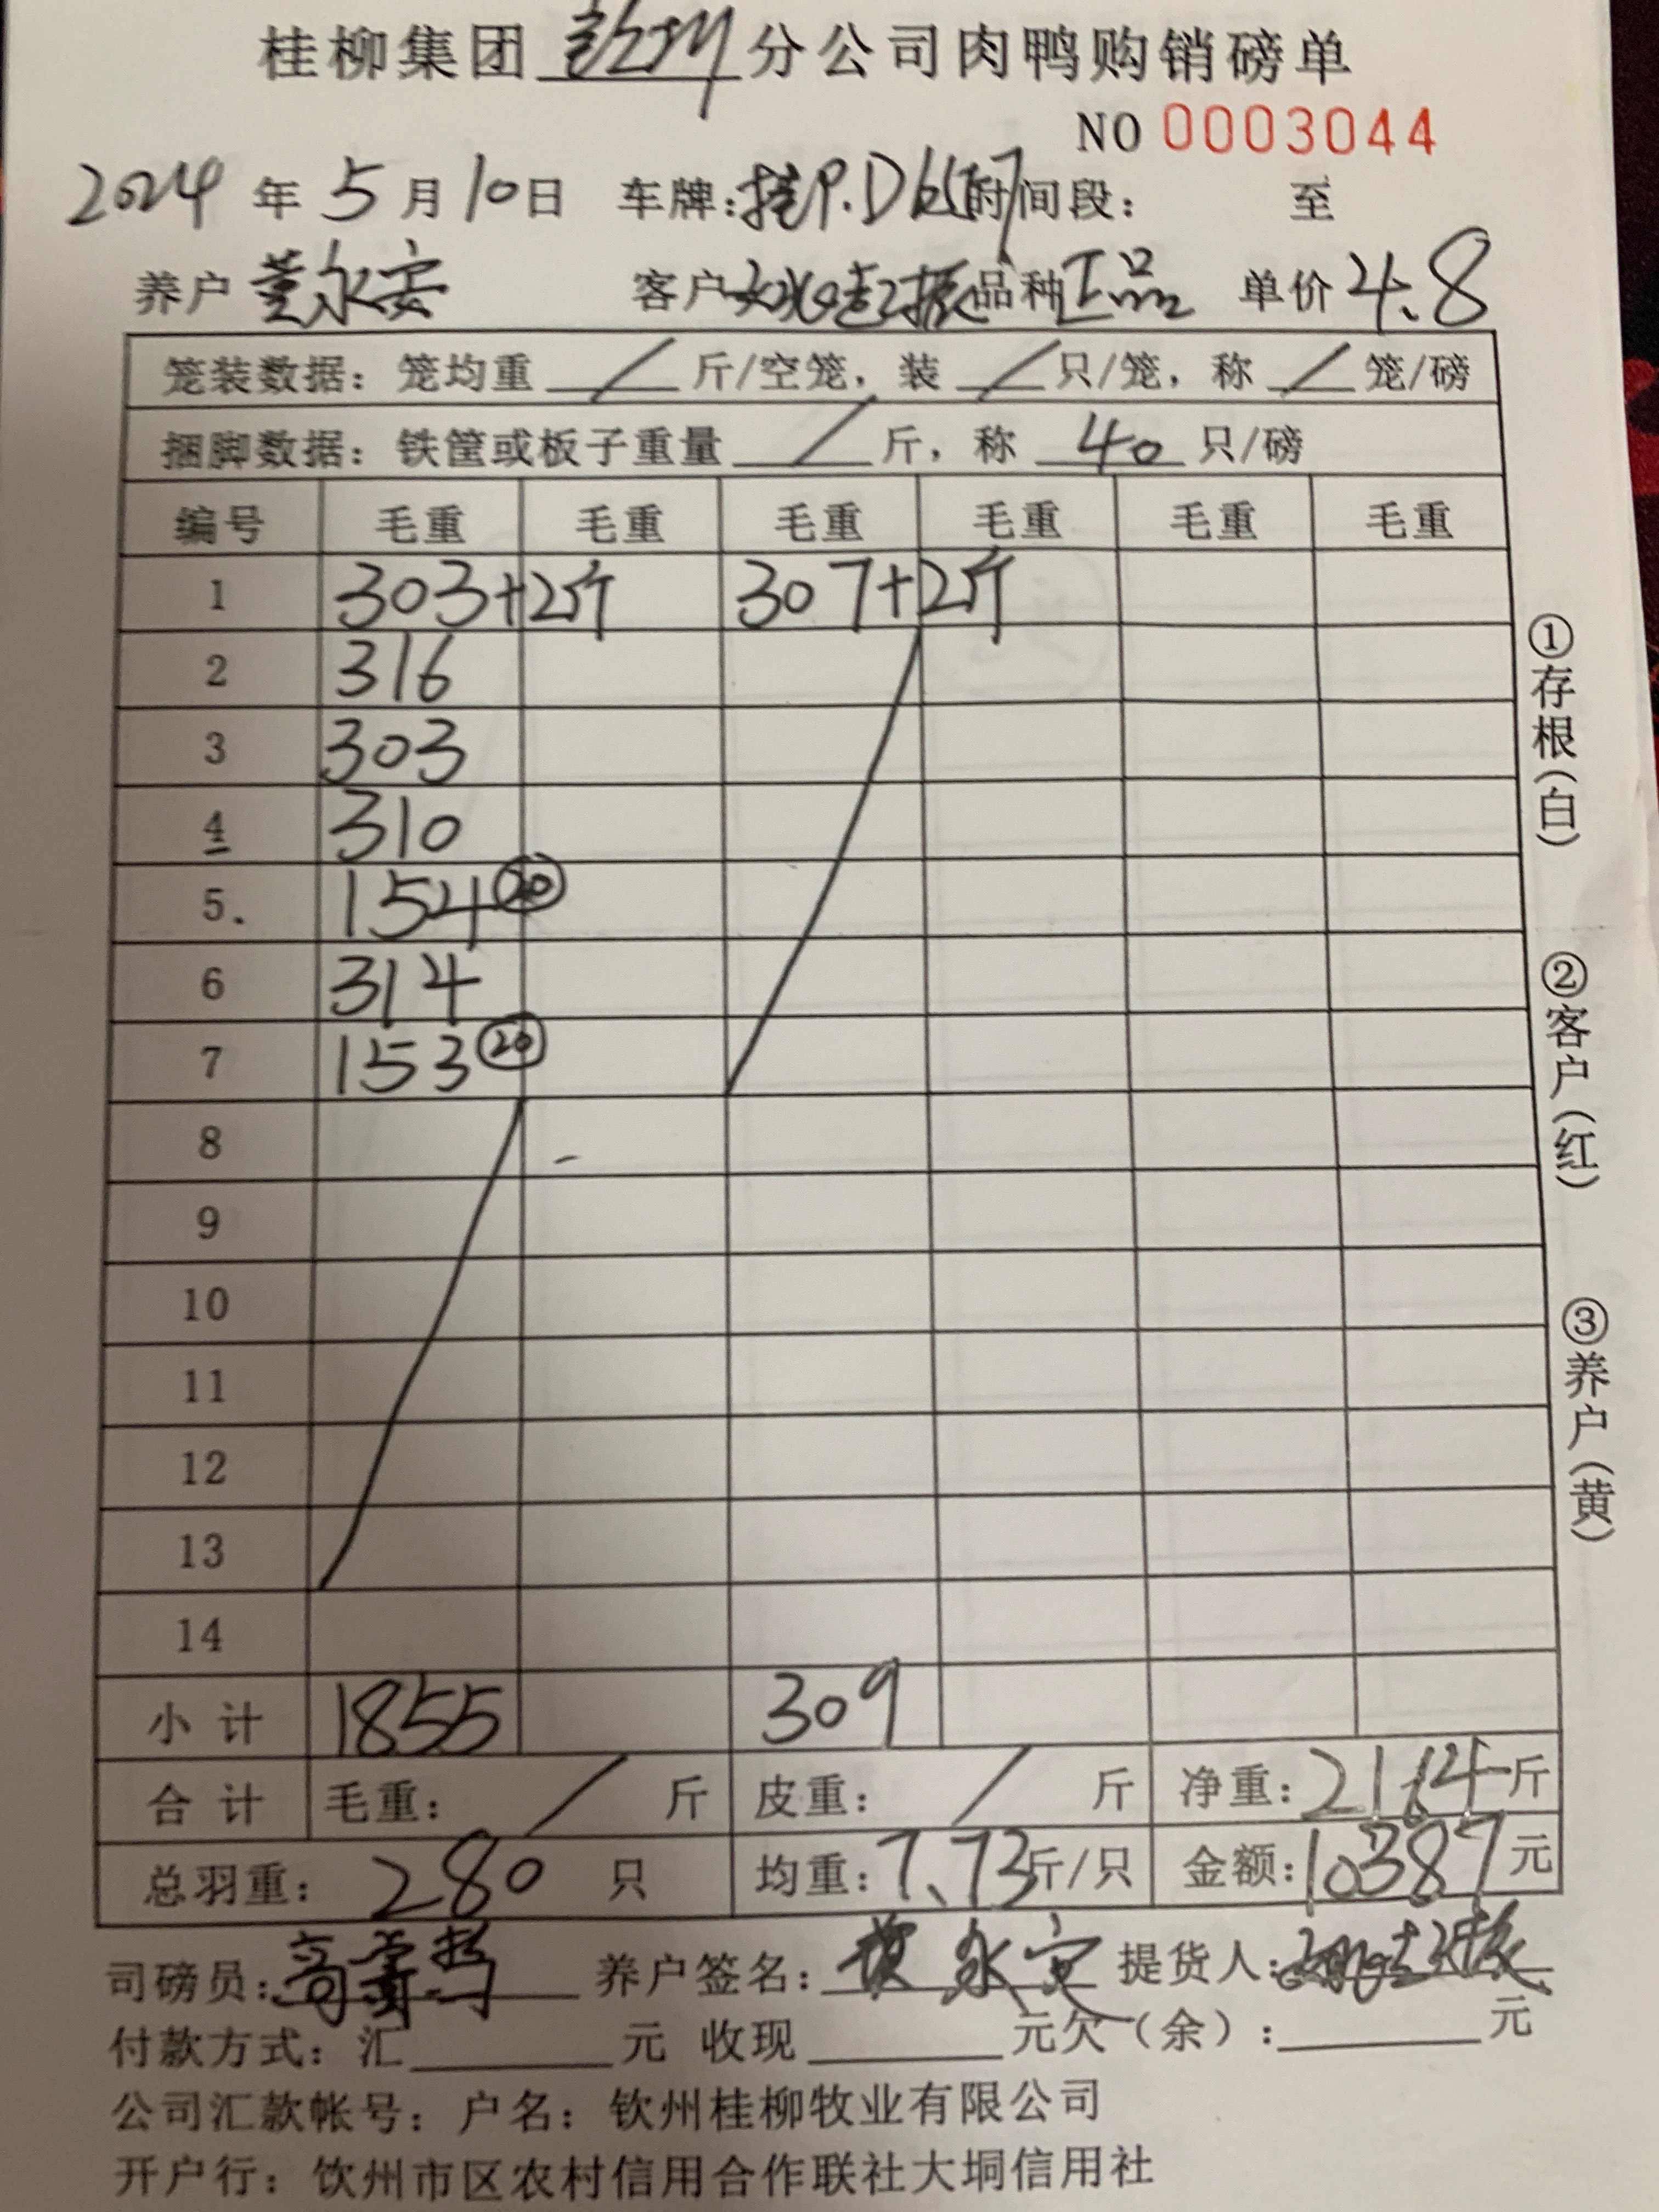 桂柳集团 钦州 分公司肉鸭购销磅单
NO 0003044
2024 年 5 月 10 日 车牌: 桂P.D 时间段: 至
养户 董永安 客户 品种 正品 单价 4.8
笼装数据: 笼均重 / 斤/空笼, 装 / 只/笼, 称 / 笼/磅
捆脚数据: 铁筐或板子重量 / 斤, 称 40 只/磅
编号 毛重 毛重 毛重 毛重 毛重 毛重
1 303+2斤 307+2斤
2 316
3 303
4 310
5. 154 ⑳
6 314
7 153 ⑳
8
9
10
11
12
13
14
小 计 1855 309
合 计 毛重: / 斤 皮重: / 斤 净重: 2164 斤
总羽重: 280 只 均重: 7.73 斤/只 金额: 10387 元
司磅员: 养户签名: 永安 提货人:
付款方式: 汇 元 收现 元欠(余): 元
公司汇款帐号: 户名: 钦州桂柳牧业有限公司
开户行: 饮州市区农村信用合作联社大垌信用社
①存根(白)
②客户(红)
③养户(黄)